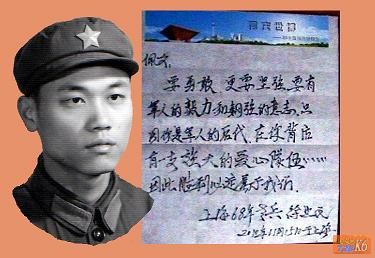 要勇敢 更要坚强,要有
军人的毅力和顽强的意志,只
因你是军人的后代,在你背后
有一支强大的爱心队伍……
因此胜利必定属于我们.
上海68年老兵
年11月15日于上海
K6